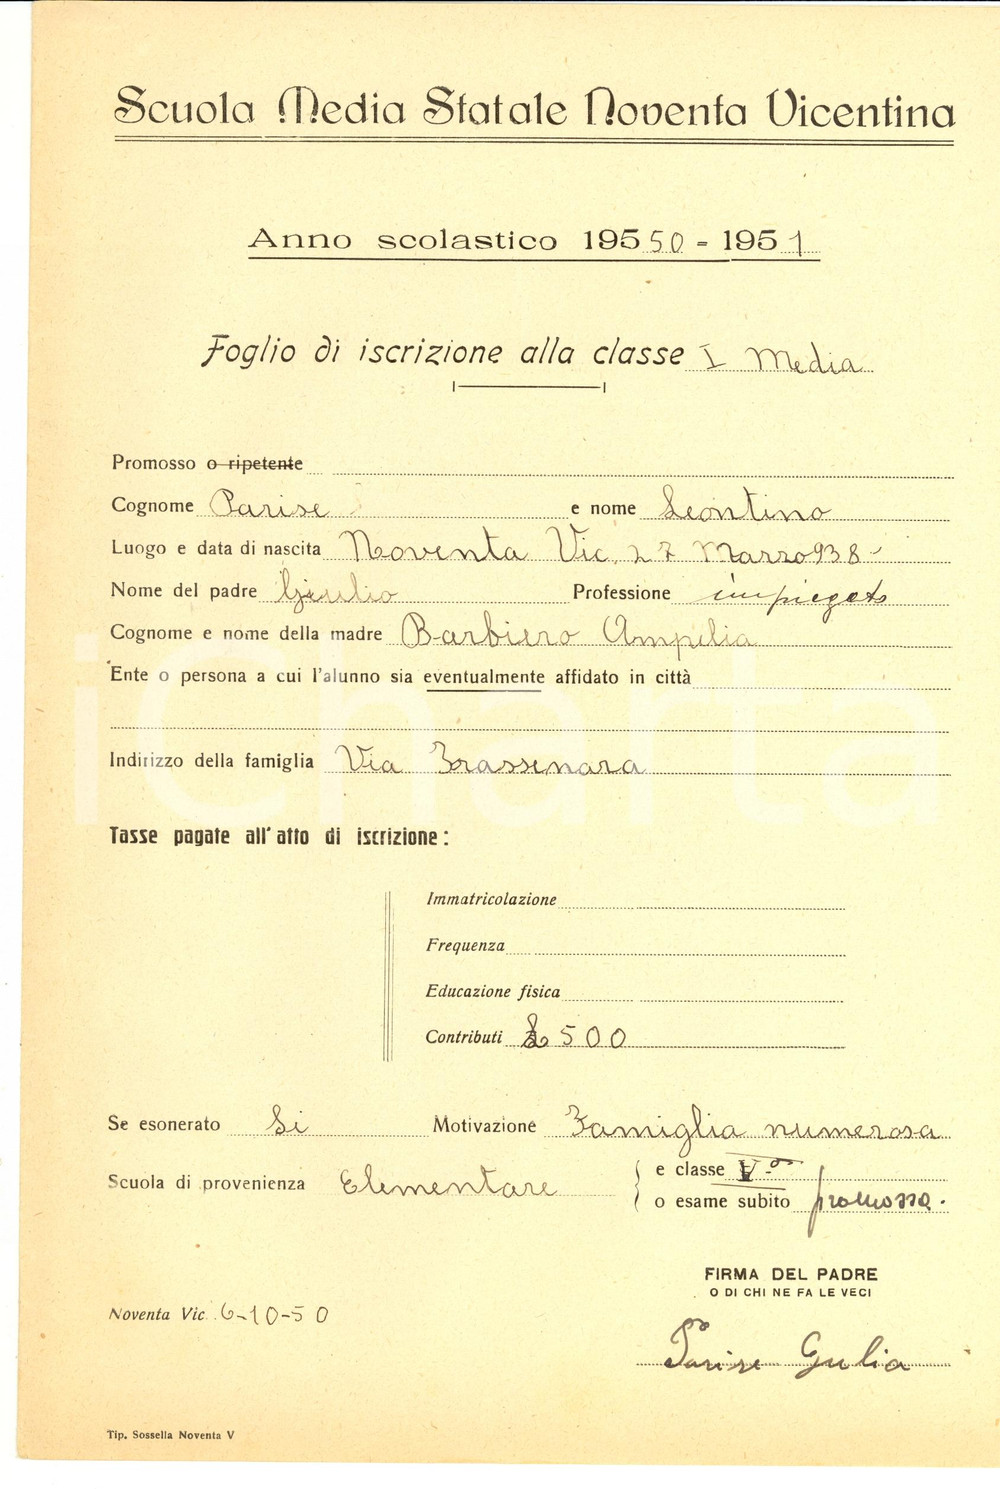 Scuola Media Statale Noventa Vicentina
Anno scolastico 195 50 = 195 1
Foglio di iscrizione alla classe I Media
Promosso o ripetente
Cognome Parise e nome Leontino
Luogo e data di nascita Noventa Vic. 27 Marzo 938
Nome del padre Giulio Professione impiegato
Cognome e nome della madre Barbiero Ampelia
Ente o persona a cui l'alunno sia eventualmente affidato in città
Indirizzo della famiglia Via Frassenara
Tasse pagate all'atto di iscrizione:
Immatricolazione
Frequenza
Educazione fisica
Contributi £ 500
Se esonerato Si Motivazione Famiglia numerosa
Scuola di provenienza Elementare
e classe V
o esame subito promosso.
FIRMA DEL PADRE
O DI CHI NE FA LE VECI
Noventa Vic. 6-10-50
Parise Gulia
Tip. Sossella Noventa V
iCharta